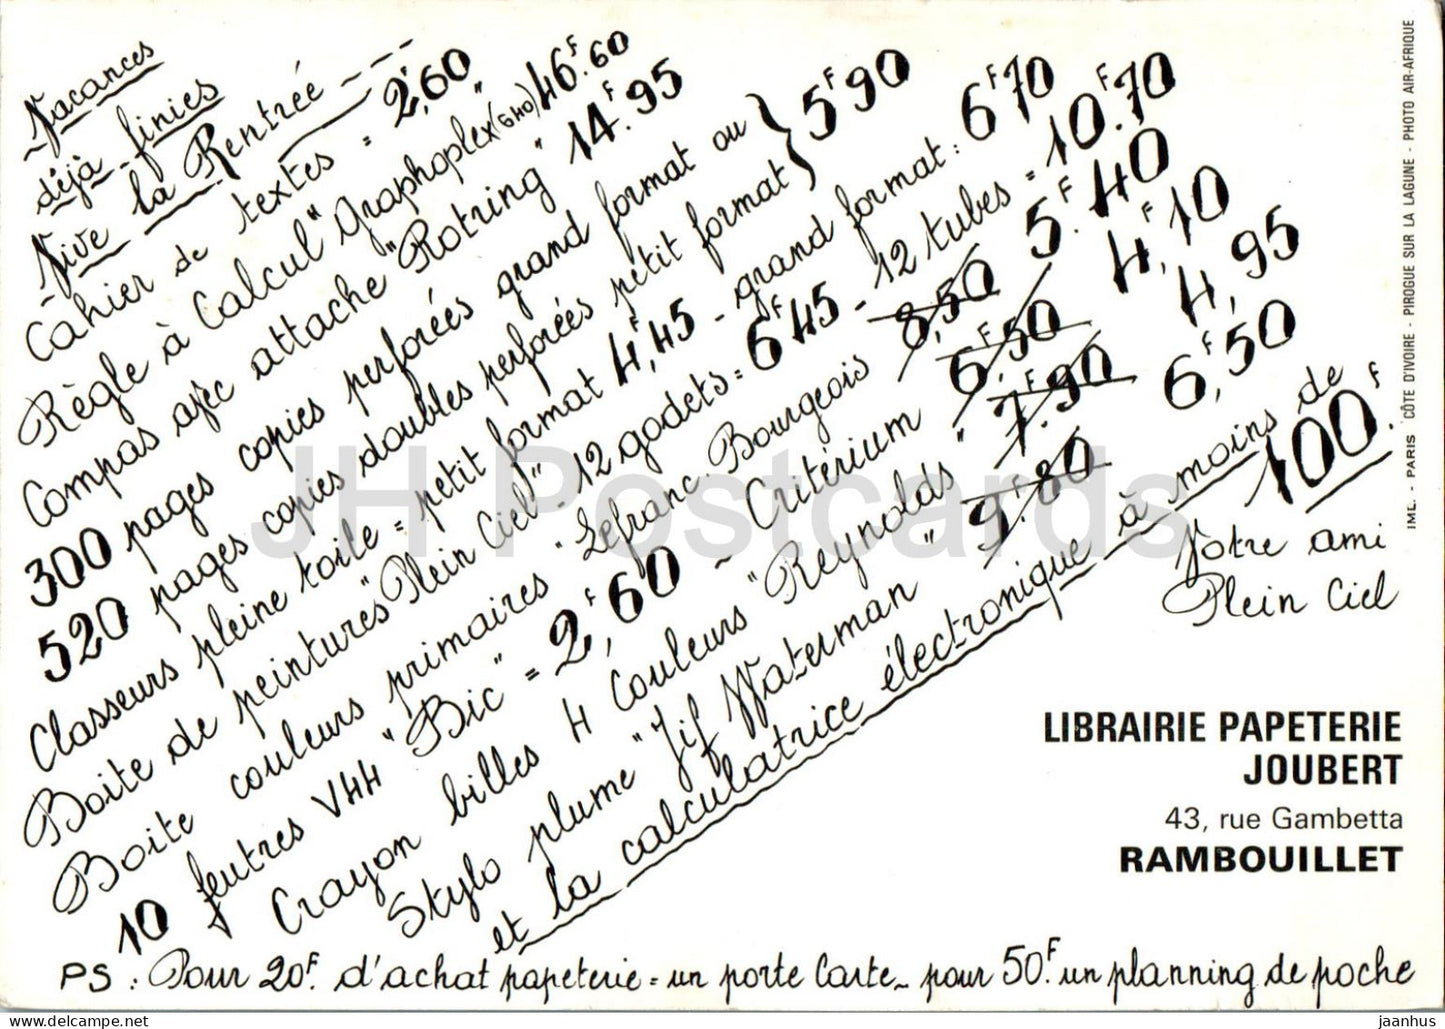 Vacances
déjà finies
Vive la Rentrée ---
Cahier de textes = 2,F60
Règle à Calcul "Graphoplex" (640) 46F.60
Compas avec attache "Rotring" 14F.95
300 pages copies perforées grand format ou
520 pages copies doubles perforées petit format } 5F90
Classeurs pleine toile = petit format 4F,45 - grand format : 6F70
Boite de peintures "Plein Ciel" - 12 godets = 6F45 - 12 tubes = 10F.70
Boite couleurs primaires "Lefranc. Bourgeois 8,50 5F.40
10 feutres V44 "Bic" = 2F,60 - Critérium 6F,50 4F,10
Crayon billes 4 Couleurs "Reynolds" 7F.90 4,95
Stylo plume "Jif Waterman" 9F.80 6F,50
et la calculatrice électronique à moins de 100F.
Votre ami
Plein Ciel
LIBRAIRIE PAPETERIE
JOUBERT
43, rue Gambetta
RAMBOUILLET
PS : Pour 20F. d'achat papeterie = un porte Carte - pour 50F. un planning de poche
IML. - PARIS CÔTE D'IVOIRE - PIROGUE SUR LA LAGUNE - PHOTO AIR-AFRIQUE
JH Postcards
jaanhus - delcampe.net